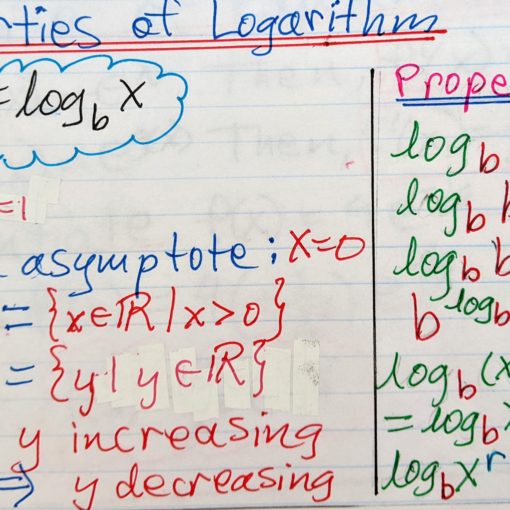 rties of Logarithm
= log_b x
=1
asymptote: x=0
= {x∈ℝ | x>0}
= {y | y∈ℝ}
y increasing
⇒ y decreasing
Prope
log_b
log_b b
log_b b
b^log_b
log_b (x
= log_b x
log_b x^r